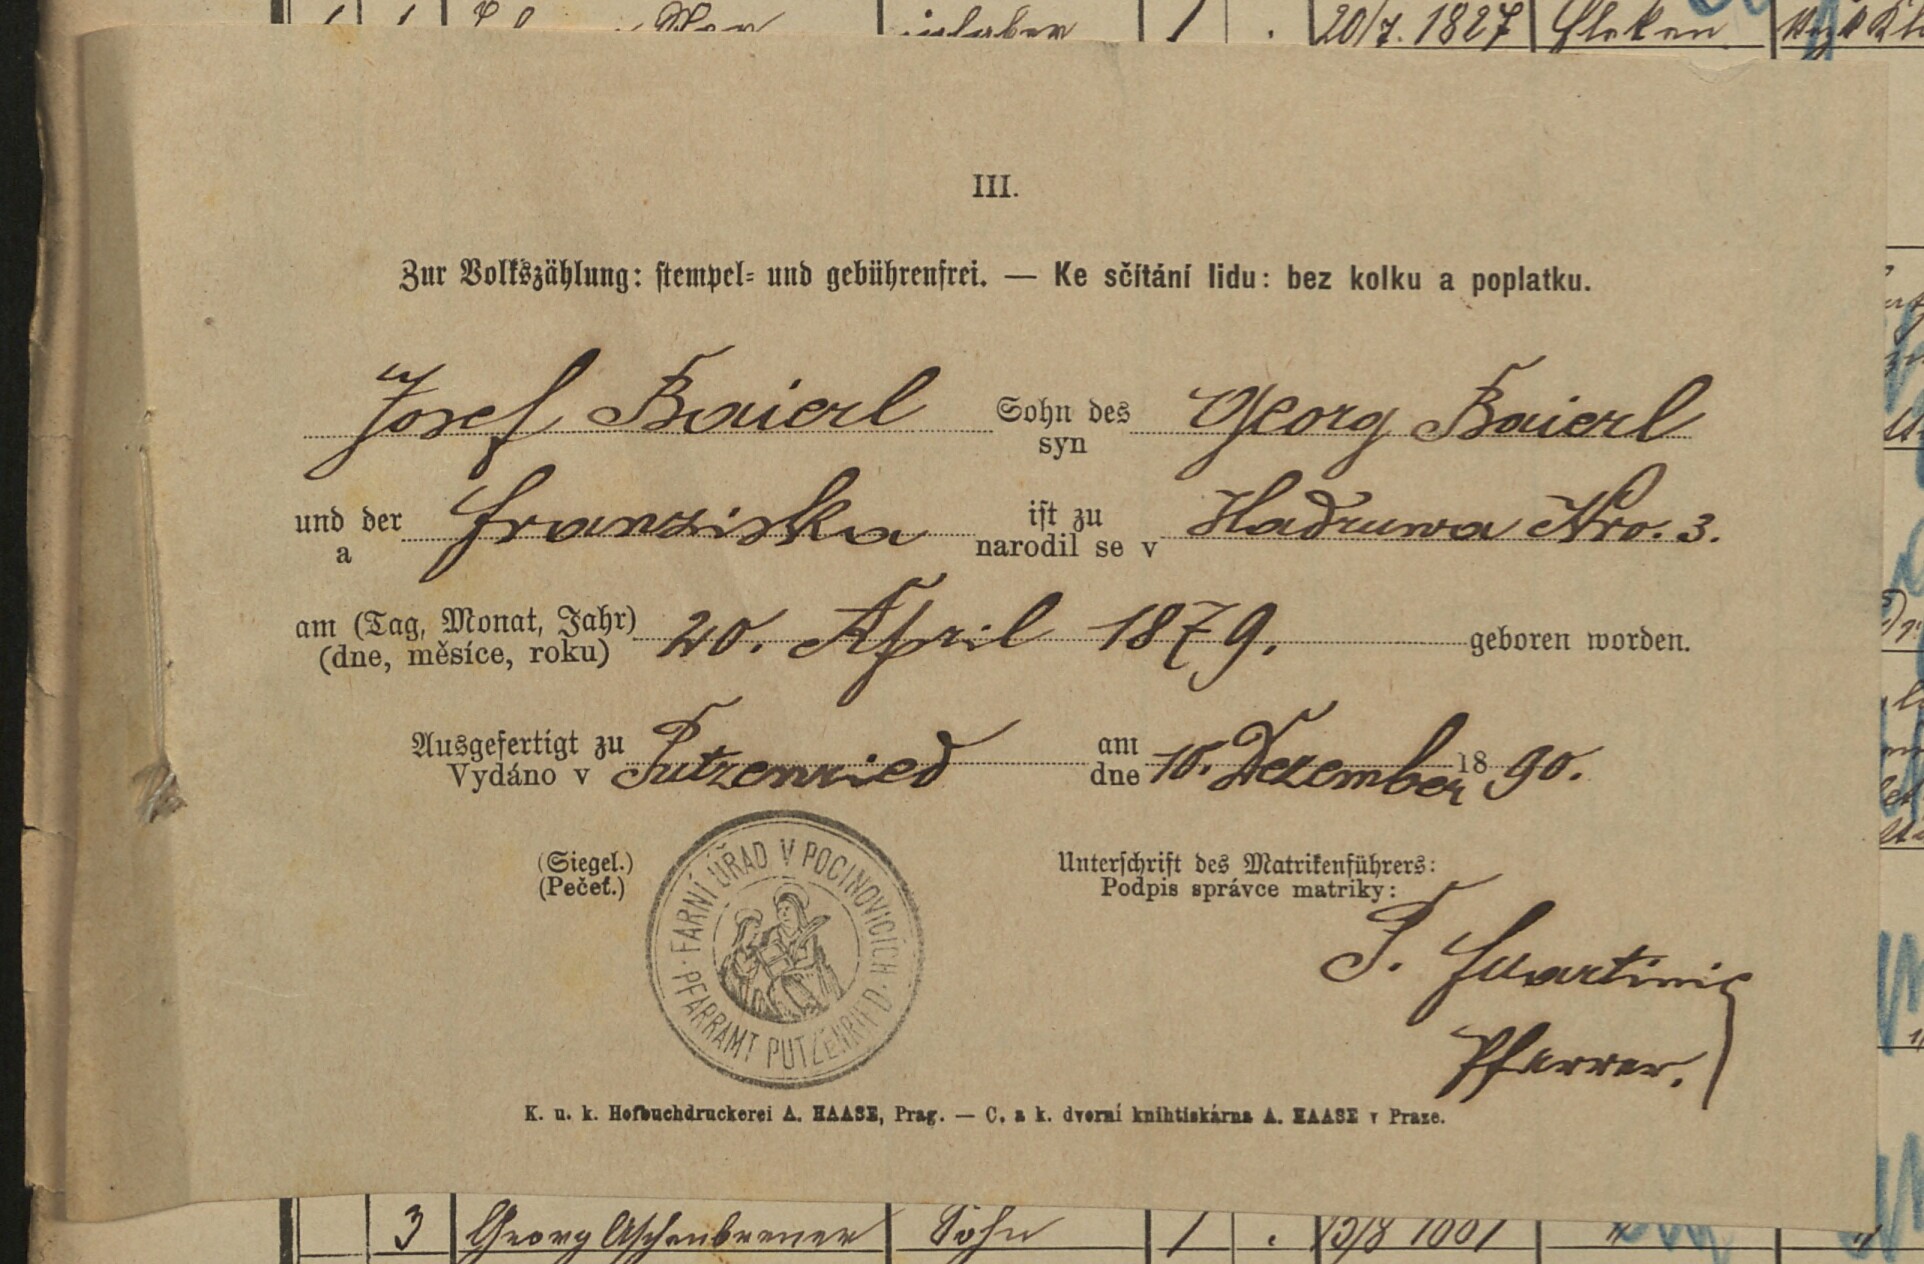 20/7. 1827
III.
Zur Volkszählung: stempel- und gebührenfrei. — Ke sčítání lidu: bez kolku a poplatku.
Josef Baierl Sohn des Georg Baierl
syn
und der Franziska ist zu Hadruwa Nro. 3.
a narodil se v
am (Tag, Monat, Jahr) 20. April 1879. geboren worden.
(dne, měsíce, roku)
Ausgefertigt zu Putzenried am 10. Dezember 1890.
Vydáno v dne
(Siegel.) Unterschrift des Matrikenführers:
(Pečeť.) Podpis správce matriky:
FARNÍ ÚŘAD V POCINOVICÍCH
PFARRAMT PUTZENRIED
P. Martinic
Pfarrer.
K. u. k. Hofbuchdruckerei A. HAASE, Prag. — C. a k. dvorní knihtiskárna A. HAASE v Praze.
3 Georg Aschenbrener Sohn 1